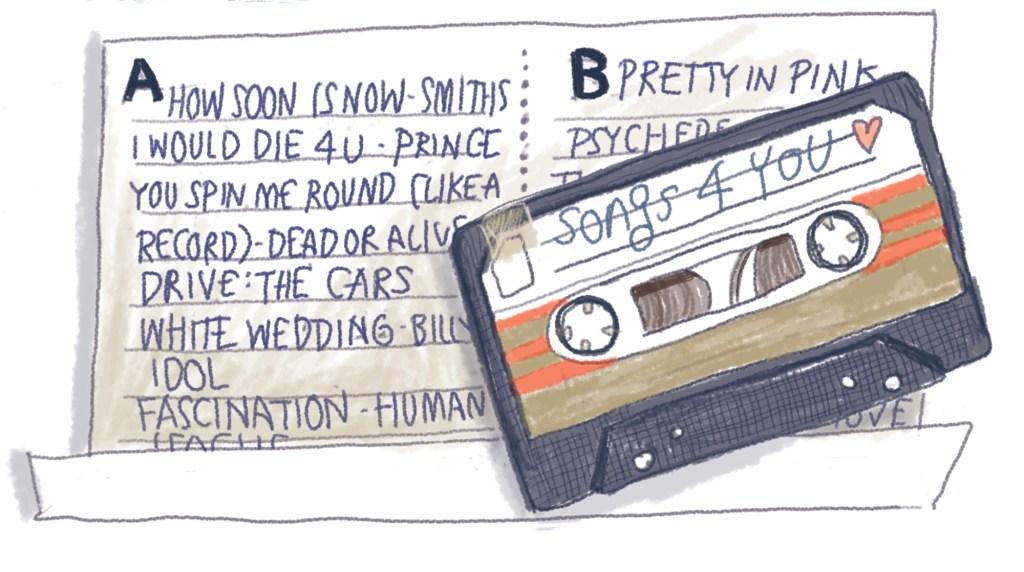 A
HOW SOON IS NOW-SMITHS
I WOULD DIE 4U - PRINCE
YOU SPIN ME ROUND (LIKE A
RECORD)-DEAD OR ALIVE
DRIVE: THE CARS
WHITE WEDDING-BILLY
IDOL
FASCINATION-HUMAN
LEAGUE
B
PRETTY IN PINK
SONGS 4 YOU